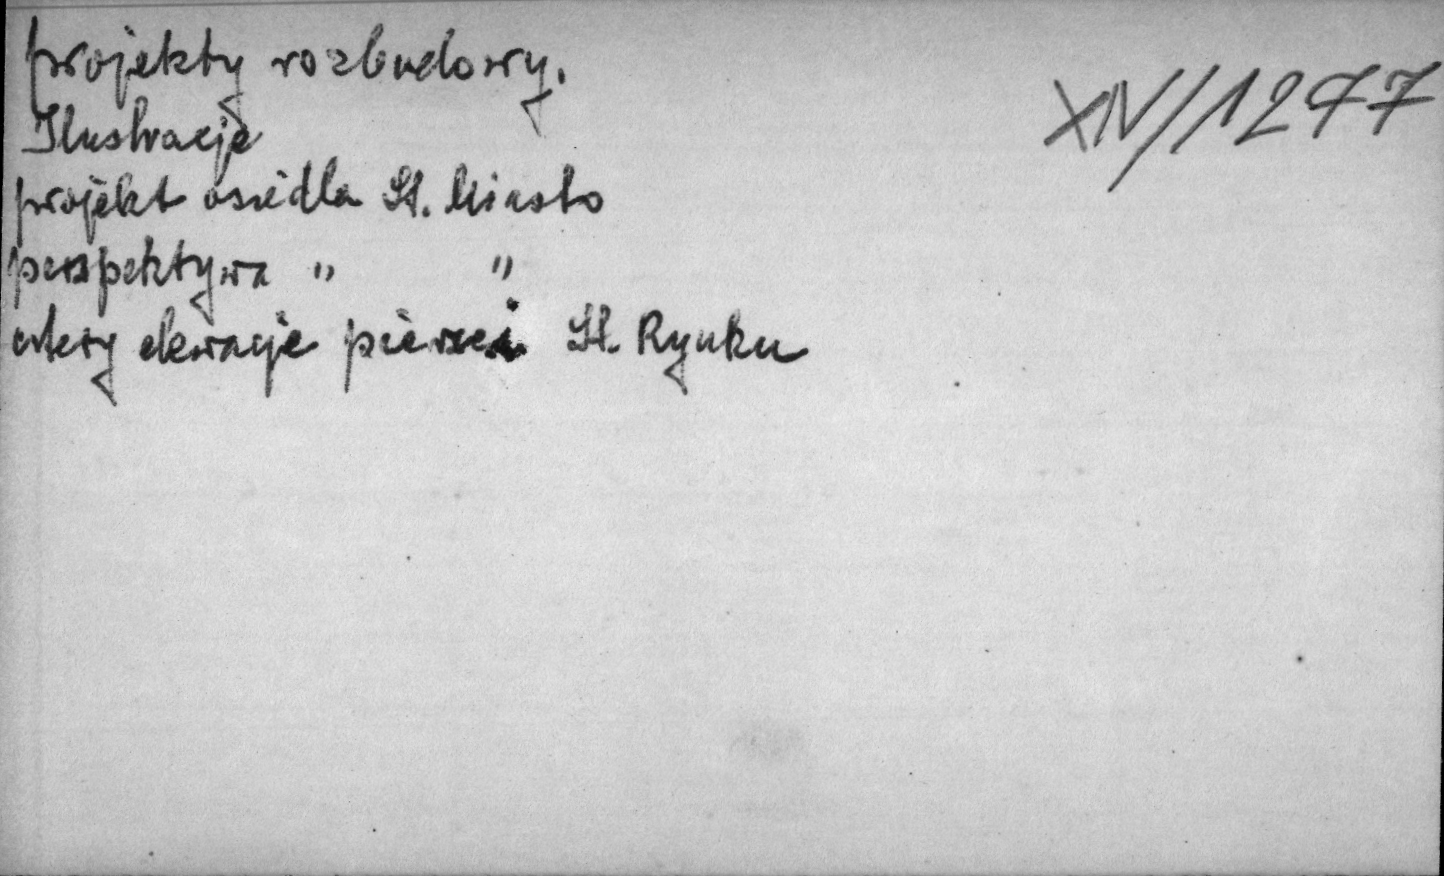 projekty rozbudowy.
XIV/1277
Ilustracje
projekt osiedla St. Miasto
perspektywa " "
cztery elewacje pierzei St. Rynku